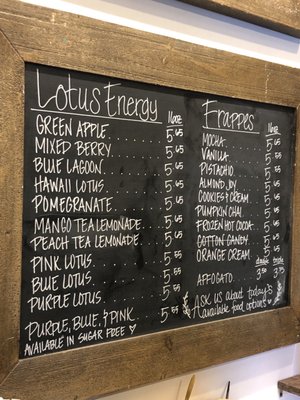 Lotus Energy 16oz
GREEN APPLE 5⁴⁵
MIXED BERRY 5⁴⁵
BLUE LAGOON 5⁴⁵
HAWAII LOTUS 5⁴⁵
POMEGRANATE 5⁴⁵
MANGO TEA LEMONADE 5⁴⁵
PEACH TEA LEMONADE 5⁴⁵
PINK LOTUS 5⁴⁵
BLUE LOTUS 5⁴⁵
PURPLE LOTUS 5⁴⁵
PURPLE, BLUE, & PINK 5⁵⁵
AVAILABLE IN SUGAR FREE ♡
Frappes 16oz
MOCHA 5⁴⁵
VANILLA 5⁴⁵
PISTACHIO 5⁴⁵
ALMOND JOY 5⁴⁵
COOKIES & CREAM 5⁴⁵
PUMPKIN CHAI 5⁴⁵
FROZEN HOT COCOA 5⁴⁵
COTTON CANDY 5⁴⁵
ORANGE CREAM 5⁴⁵
double triple
AFFOGATO 3⁵⁰ 3⁷⁵
Ask us about today's
available food options ♡